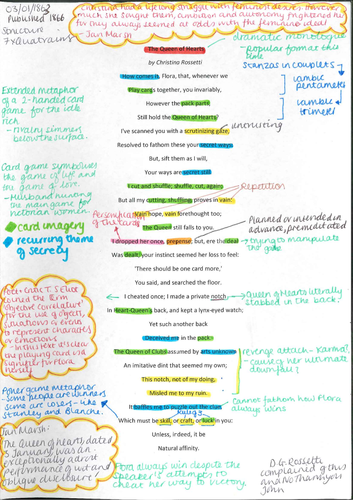 03/01/1863
Published 1866
Structure -
7 Quatrains
Christina had a lifelong struggle with feminist desires. However
much she sought them, ambition and autonomy frightened her
for they always seemed at odds with the feminine ideal
- Jan Marsh
dramatic monologue
- popular form at this
time
Stanzas in couplets
iambic
pentameter
iambic
trimeter
The Queen of Hearts
by Christina Rossetti
How comes it, Flora, that, whenever we
Play cards together, you invariably,
However the pack parts,
Still hold the Queen of Hearts?
I've scanned you with a scrutinizing gaze,
Resolved to fathom these your secret ways:
But, sift them as I will,
Your ways are secret still.
I cut and shuffle; shuffle, cut, again;
But all my cutting, shuffling, proves in vain:
Vain hope, vain forethought too;
The Queen still falls to you.
I dropped her once, prepense; but, ere the deal
Was dealt, your instinct seemed her loss to feel:
'There should be one card more,'
You said, and searched the floor.
I cheated once; I made a private notch
In Heart-Queen's back, and kept a lynx-eyed watch;
Yet such another back
Deceived me in the pack:
The Queen of Clubs assumed by arts unknown
An imitative dint that seemed my own;
This notch, not of my doing,
Misled me to my ruin.
It baffles me to puzzle out the clue,
Which must be skill, or craft, or luck in you:
Unless, indeed, it be
Natural affinity.
Extended metaphor
of a 2-handed card
game for the idle
rich
- rivalry simmers
below the surface.
Card game symbolises
the game of life and
the game of love.
- Husband hunting
the main game for
victorian women
card imagery
recurring theme
of secrecy
Personification
of the cards
unerusting
Repetition
Planned or intended in
advance, premeditated
trying to manipulate
the game
Queen of Hearts literally
stabbed in the back!
revenge attack - Karma?
cause her ultimate
downfall?
cannot fathom how Flora
always wins
Poet + Critic T.S Eliot
coined the term
'objective correlative' for
the use of objects,
situations or events
to represent characters
or emotions
Jan Marsh:
'The Queen of hearts', dated
3 January, was an
exceptionally adroit
performance of wit and
oblique disclosure
Flora always win despite the
speaker's attempts to
cheat her way to victory.
D.G. Rossetti
complained of this
and No Thankyou
John